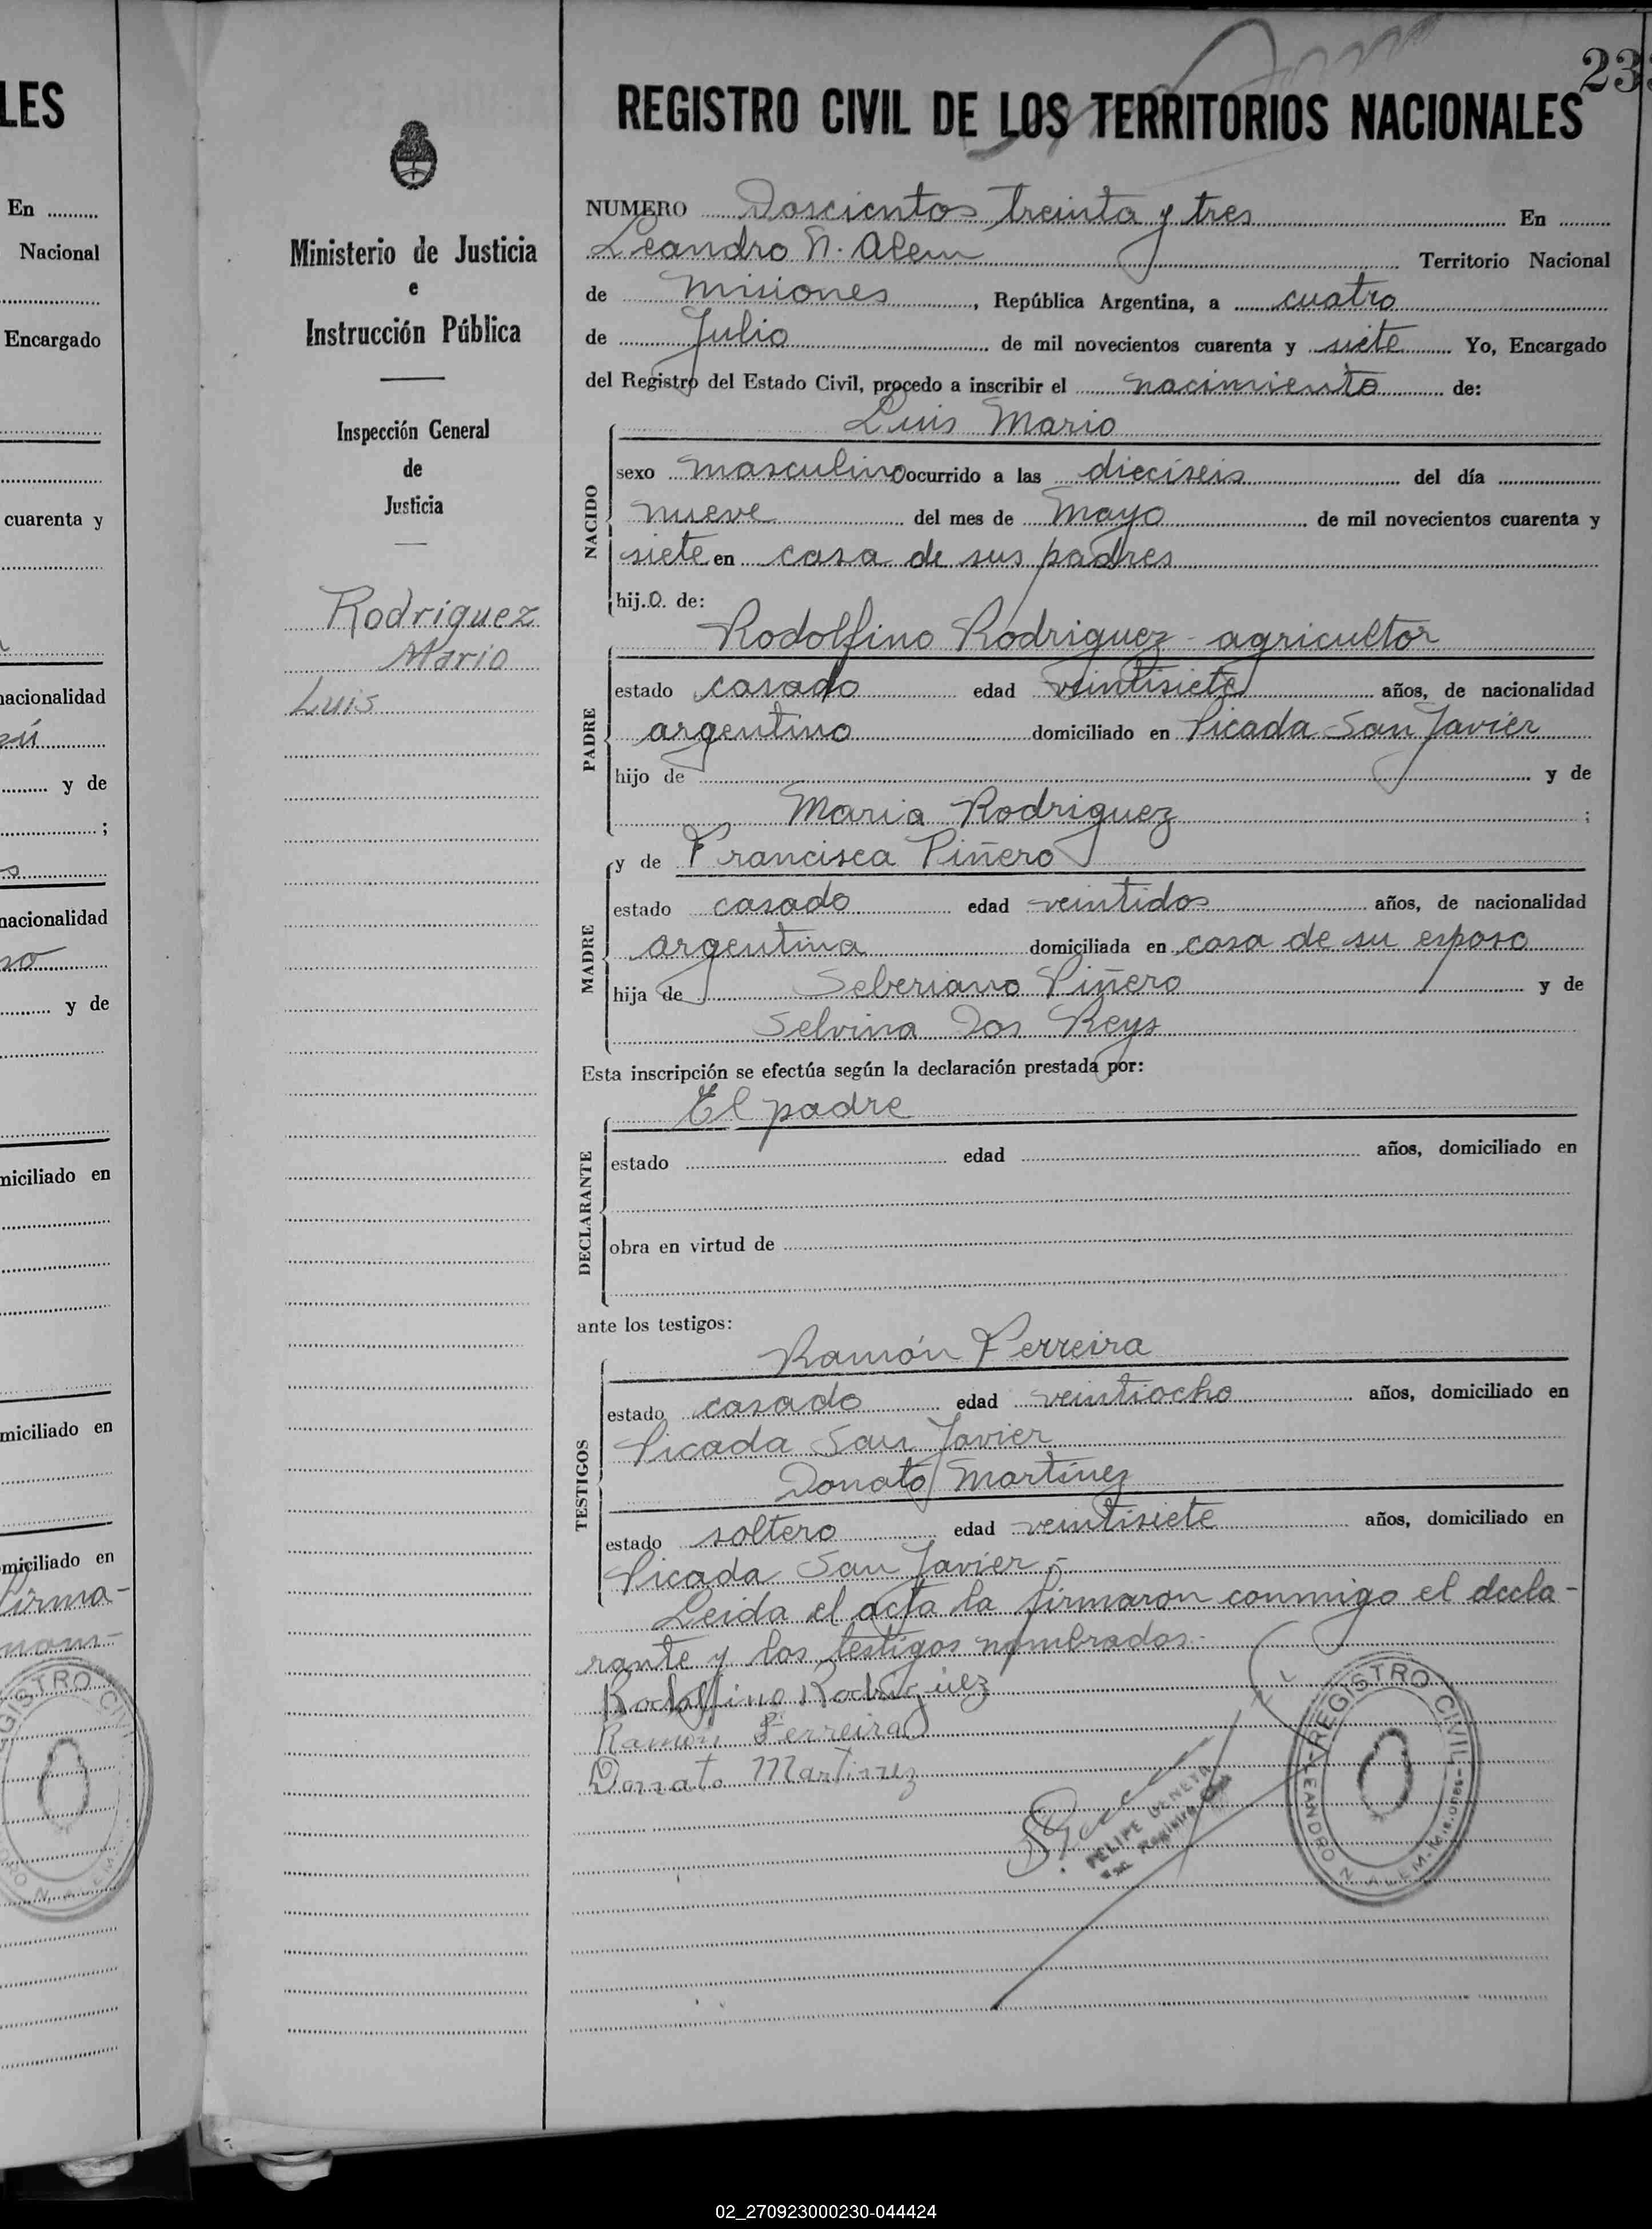 LES
En
Nacional
Encargado
cuarenta y
nacionalidad
y de
;
nacionalidad
so
y de
miciliado en
miciliado en
omiciliado en
firma-
Ministerio de Justicia
e
Instrucción Pública
Inspección General
de
Justicia
Rodriguez
Mario
Luis
233
REGISTRO CIVIL DE LOS TERRITORIOS NACIONALES
NUMERO Doscientos treinta y tres En
Leandro N. Alem Territorio Nacional
de Misiones, República Argentina, a cuatro
de Julio de mil novecientos cuarenta y siete Yo, Encargado
del Registro del Estado Civil, procedo a inscribir el nacimiento de:
Luis Mario
NACIDO
sexo masculino ocurrido a las dieciseis del día
nueve del mes de Mayo de mil novecientos cuarenta y
siete en casa de sus padres
hij.o. de:
Rodolfino Rodriguez - agricultor
PADRE
estado casado edad veintisiete años, de nacionalidad
argentino domiciliado en Picada San Javier
hijo de y de
Maria Rodriguez ;
y de Francisca Piñero
MADRE
estado casado edad veintidos años, de nacionalidad
argentina domiciliada en casa de su esposo
hija de Seberiano Piñero y de
Selvina Dos Reys
Esta inscripción se efectúa según la declaración prestada por:
El padre
DECLARANTE
estado edad años, domiciliado en
obra en virtud de
ante los testigos:
Ramón Ferreira
TESTIGOS
estado casado edad veintiocho años, domiciliado en
Picada San Javier
Donato Martinez
estado soltero edad veintisiete años, domiciliado en
Picada San Javier.-
Leida el acta la firmaron conmigo el decla-
rante y los testigos nombrados.-
Rodolfino Rodriguez
Ramon Ferreira
Donato Martinez
FELIPE
Enc. Registro Civil
REGISTRO CIVIL
LEANDRO N. ALEM - Misiones -
02_270923000230-044424